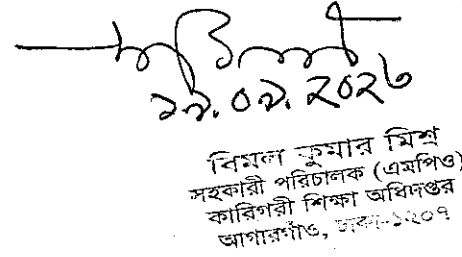 ১৯.০৯.২০২৩
বিমল কুমার মিশ্র
সহকারী পরিচালক (এমপিও)
কারিগরী শিক্ষা অধিদপ্তর
আগারগাঁও, ঢাকা-১২০৭